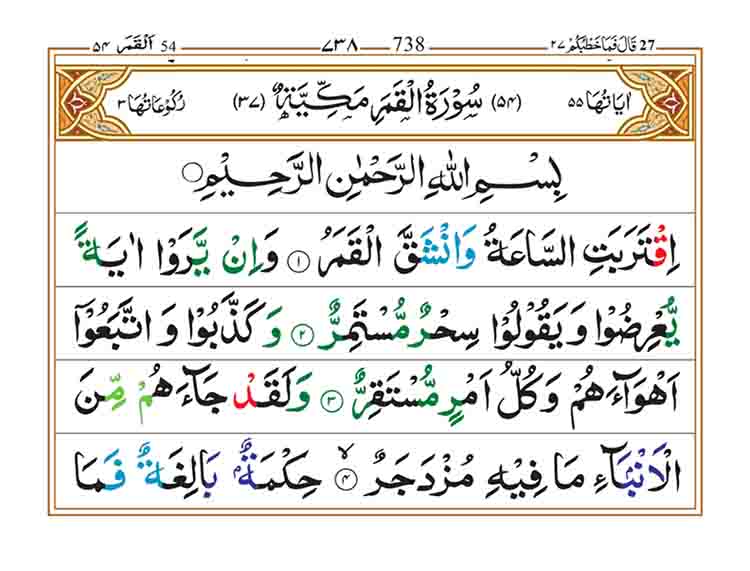 27 قَالَ فَمَا خَطْبُكُمْ ٢٧ 738 ٧٣٨ 54 اَلْقَمَر ٥٤
اٰيَاتُهَا ٥٥ (٥٤) سُوْرَةُ الْقَمَرِ مَكِّيَّةٌ (٣٧) رُكُوْعَاتُهَا ٣
بِسْمِ اللّٰهِ الرَّحْمٰنِ الرَّحِيْمِ
اِقْتَرَبَتِ السَّاعَةُ وَانْشَقَّ الْقَمَرُ ۝١ وَاِنْ يَّرَوْا اٰيَةً
يُّعْرِضُوْا وَيَقُوْلُوْا سِحْرٌ مُّسْتَمِرٌّ ۝٢ وَكَذَّبُوْا وَاتَّبَعُوْٓا
اَهْوَآءَهُمْ وَكُلُّ اَمْرٍ مُّسْتَقِرٌّ ۝٣ وَلَقَدْ جَآءَهُمْ مِّنَ
الْاَنْۢبَآءِ مَا فِيْهِ مُزْدَجَرٌ ۝٤ ۙ حِكْمَةٌۢ بَالِغَةٌ فَمَا